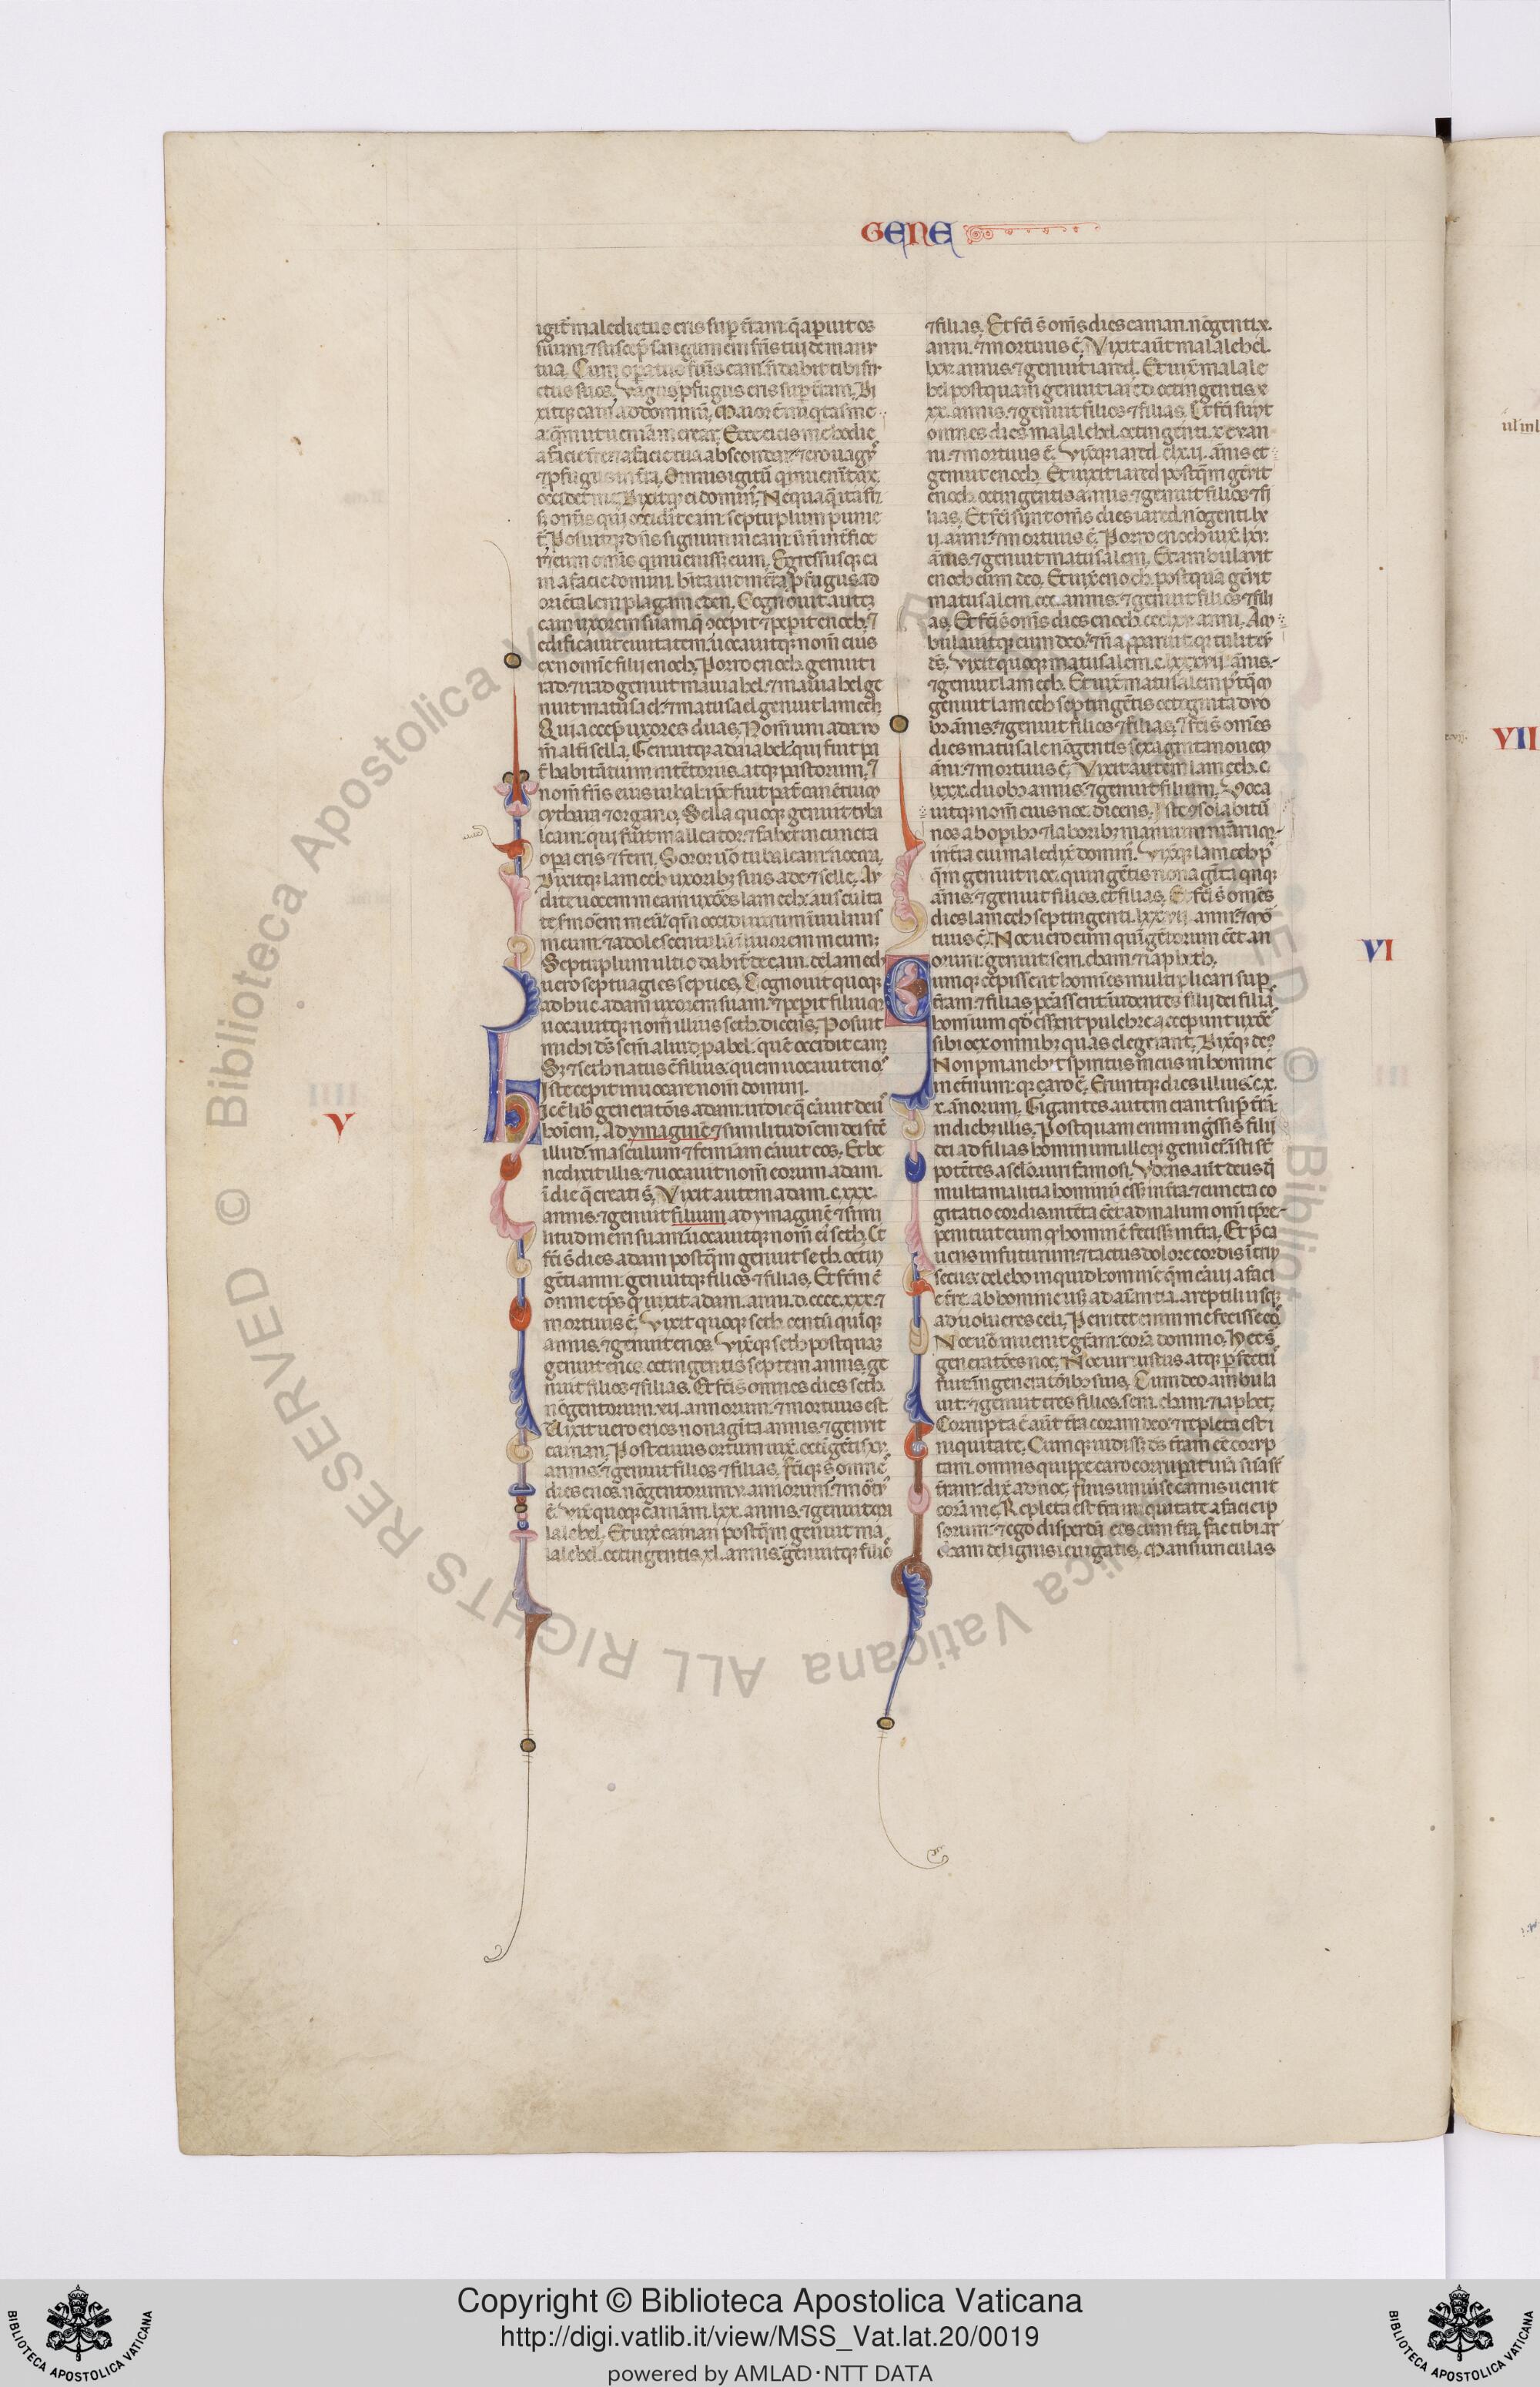 GENE
igit᷑ maledictus eris sup̱ t̃ram. q̃ aperuit os
suum ⁊ suscep̃ sanguinem fr̃is tui de manu
tua. Cum operatus fũis eam. ñ dabit tibi fru
ctus suos. vagus ⁊ ꝓfugus eris sup̱ t̃ram. Di
xitq; cain ad dominũ. Maior ẽ iniq̇tas me
a q̃m ut ueniam merear. Ecce eicis me hodie
a facie t̃re ⁊ a facie tua abscondar ⁊ ero uagꝰ
⁊ ꝓfugus in t̃ra. Omnis igitũ q̇ inuen̾it me
occidet me. Dixitq; ei domin̾. Nequaq̃ ita fi
s; om̃is qui occiderit cain. septuplum punie
t᷑. Posuitq; dñs signum in cain. ut ñ int̾fice
ret eum om̃is q̇ inuenisset eum. Egressusq; ca
in a facie domini. hitauit in t̃ra ꝓfugus ad
oriẽtalem plagam eden. Cognouit autez
cain uxorem suam. q̃ ↄcepit ⁊ peperit enoch. ⁊
edificauit ciuitatem. uocauitq; nom̃ eius
ex nomĩe filii enoch. Porro enoch genuit i
rad. ⁊ irad genuit mauiahel. ⁊ mauiahel ge
nuit matusael. ⁊ matusael genuit lamech.
Qui accep̃ uxores duas. Nom̃ uni ada. ⁊ no
m̃ alt̾i sella. Genuitq; ada iabel. qui fuit pa
t̾ habitãtium in tẽtoriis. atq; pastorum. ⁊
nom̃ fr̃is eius iubal. ip̃e fuit pat̾ canẽtium
cythara ⁊ organo. Sella quoq; genuit tuba
lcain. qui fuit malleator. ⁊ faber in cuncta
opa eris ⁊ ferri. Soror u̾o tubalcain. noema.
Dixitq; lamech uxoribꝫ suis ade ⁊ selle. Au
dite uocem meam uxores lamech. ausculta
te s̾monẽ meũ. qm̃ occidi uirum ĩ uulnus
meum. ⁊ adolescentulũ ĩ liuorem meum.
Septuplum ultio dabit᷑ de cain. de lamech
uero septuagies septies. Cognouit quoq;
adhuc adam uxorem suam. ⁊ peperit filium
uocauitq; nom̃ illius seth. dicens. Posuit
michi ds̃ sem̃ aliud. p̱ abel. quẽ occidit cain
S; ⁊ seth natus ẽ filius. quem uocauit enos.
Iste cepit inuocare nom̃ domini.
V
Hic ẽ lib̾ generatõis adam. in die q̃ c̾auit deus
hoĩem. Ad ymaginẽ ⁊ similitudinem dei fecit
illud. masculum ⁊ feminam c̾auit eos. Et be
nedixit illis. ⁊ uocauit nom̃ eorum adam.
ĩ die q̃ creati s̃. Vixit autem adam .c.xxx.
annis. ⁊ genuit filium ad ymaginẽ ⁊ simi
litudinem suam. uocauitq; nom̃ eĩ seth. Et
fc̃i s̃ dies adam postq̃m genuit seth. octin
gẽti anni. genuitq; filios ⁊ filias. Et fc̃m ẽ
omne tp̃s q̇ uixit adam. anni .d.cccc.xxx. ⁊
mortuus ẽ. Vixit quoq; seth centũ quinq;
annis. ⁊ genuit enos. Vix̾q; seth postquaꝫ
genuit enos. octingentis septem annis. ge
nuit filios ⁊ filias. Et fc̃i s̃ omnes dies seth.
nõgentorum .xii. annorum. ⁊ mortuus est
Uixit uero enos nonagĩta annis. ⁊ genuit
cainan. Post cuius ortum uix̾. octigẽtis .xv.
annis. ⁊ genuit filios ⁊ filias. fc̃iq; s̃ omnẽ
dies enos. nõgentorum .v. annorum. ⁊ mortꝰ
ẽ. Vix̾ quoq; cainam .lxx. annis. ⁊ genuit ma
lalehel. Et uix̾ cainan postq̃m genuit ma
lalehel. octingentis .xl. annis. genuitq; filios
⁊ filias. Et fc̃i s̃ om̃s dies cainan. nõgenti .x.
anni. ⁊ mortuus ẽ. Vixit aũt malalehel.
lxv. annis. ⁊ genuit iared. Et uix̾ malale
hel postquam genuit iared. octingentis .x
xx. annis. ⁊ genuit filios ⁊ filias. Et fc̃i sunt
omnes dies malalehel. octingenti .xcv. an
ni. ⁊ mortuus ẽ. Vix̾q; iared .c.lx.ii. ãnis et
genuit enoch. Et uixit iared postq̃m gen̾it
enoch. octingentis annis. ⁊ genuit filios ⁊ fi
lias. Et fc̃i sunt om̃s dies iared. nõgenti .lx
ii. anni. ⁊ mortuus ẽ. Porro enoch uix̾ .lxv.
ãnis. ⁊ genuit matusalem. Et ambulauit
enoch cum deo. Et uix̾ enoch. postquã gen̾it
matusalem .ccc. annis. ⁊ genuit filios ⁊ fili
as. Et fc̃i s̃ om̃s dies enoch .ccc.lxv. anni. Am
bulauitq; cum deo. ⁊ ñ apparuit. q̇ tulit eũ
ds̃. Vixit quoq; matusalem .c.lxxxvii. ãnis.
⁊ genuit lamech. Et uix̾ matusalem p᷒tq̃m
genuit lamech septingẽtis octoginta duo
bꝫ ãnis. ⁊ genuit filios ⁊ filias. ⁊ fc̃i s̃ om̃es
dies matusale nõgentis sexaginta nouem
ãni. ⁊ mortuus ẽ. Vixit autem lamech .c.
lxxx. duobꝫ annis. ⁊ genuit filium. Voca
uitq; nom̃ eius noe. dicens. Iste ↄsolabit᷑
nos ab opibꝫ ⁊ laboribꝫ manuum nr̃arum.
in t̃ra cui maledix̾ domin̾. Vix̾q; lamech p᷒
q̃m genuit noe. quingẽtis nonagĩta q̇nq;
ãnis. ⁊ genuit filios. et filias. Et fc̃i s̃ om̃es
dies lamech septingenti .lxxvii. anni. ⁊ mor
tuus ẽ. Noe uero cum quĩgẽtorum eẽt an
VI
orum. genuit. sem. cham. ⁊ iapheth.
Cumq; cepissent homĩes multiplicari sup̱
t̃ram. ⁊ filias p̱c̾assent. uidentes filii dei filias
hominum q̇d essent pulchre. accepunt uxores
sibi ex omnibꝫ quas elegerant. Dix̾q; deꝰ
Non p̱maneb̾it spiritus meus in homine
in et̾num. qꝛ caro ẽ. Eruntq; dies illius .c.x
x. ãnorum. Gigantes autem erant sup̱ t̃ra
in diebꝫ illis. Postquam enim ing̾ssi s̃ filii
dei ad filias hominum. illeq; genuer̃t. isti s̃t
potẽtes a sclo. uiri famosi. Videns aũt deus q̇
multa malitia hominũ esset in t̃ra. ⁊ cuncta co
gitatio cordis. intẽta eẽt ad malum omni tp̃re.
penituit eum q̇ hominẽ fecisset in t̃ra. Et p̃ca
uens in futurum. ⁊ tactus dolore cordis ĩtrin
secus. delebo inquid hominẽ q̃m c̾aui a faci
e t̃re. ab homine usq; ad aĩantia. a reptili usq;
ad uolucres celi. Penitet enim me fecisse eos.
Noe u̾o inuenit gr̃am. corã domino. Hee s̃
generatões noe. Noe uir iustus atq; p̱fectus
fuit in generatõibꝫ suis. Cum deo ambula
uit. ⁊ genuit tres filios. sem. cham. ⁊ iaphet.
Corrupta ẽ aũt t̃ra coram deo. ⁊ repleta est i
niquitate. Cumq; uidiss; ds̃ t̃ram eẽ corrup
tam. omnis quippe caro corruperat uiã suã sup̱
t̃ram. dix̾ ad noe. finis uniuerse carnis uenit
corã me. Repleta est t̃ra iniquitate a facie ip
sorum. ⁊ ego disperdã eos cum t̃ra. fac tibi ar
cham de lignis leuigatis. Mansiunculas
VII
Copyright © Biblioteca Apostolica Vaticana
http://digi.vatlib.it/view/MSS_Vat.lat.20/0019
powered by AMLAD·NTT DATA
BIBLIOTECA APOSTOLICA VATICANA
BIBLIOTECA APOSTOLICA VATICANA
© Biblioteca Apostolica Vaticana ALL RIGHTS RESERVED